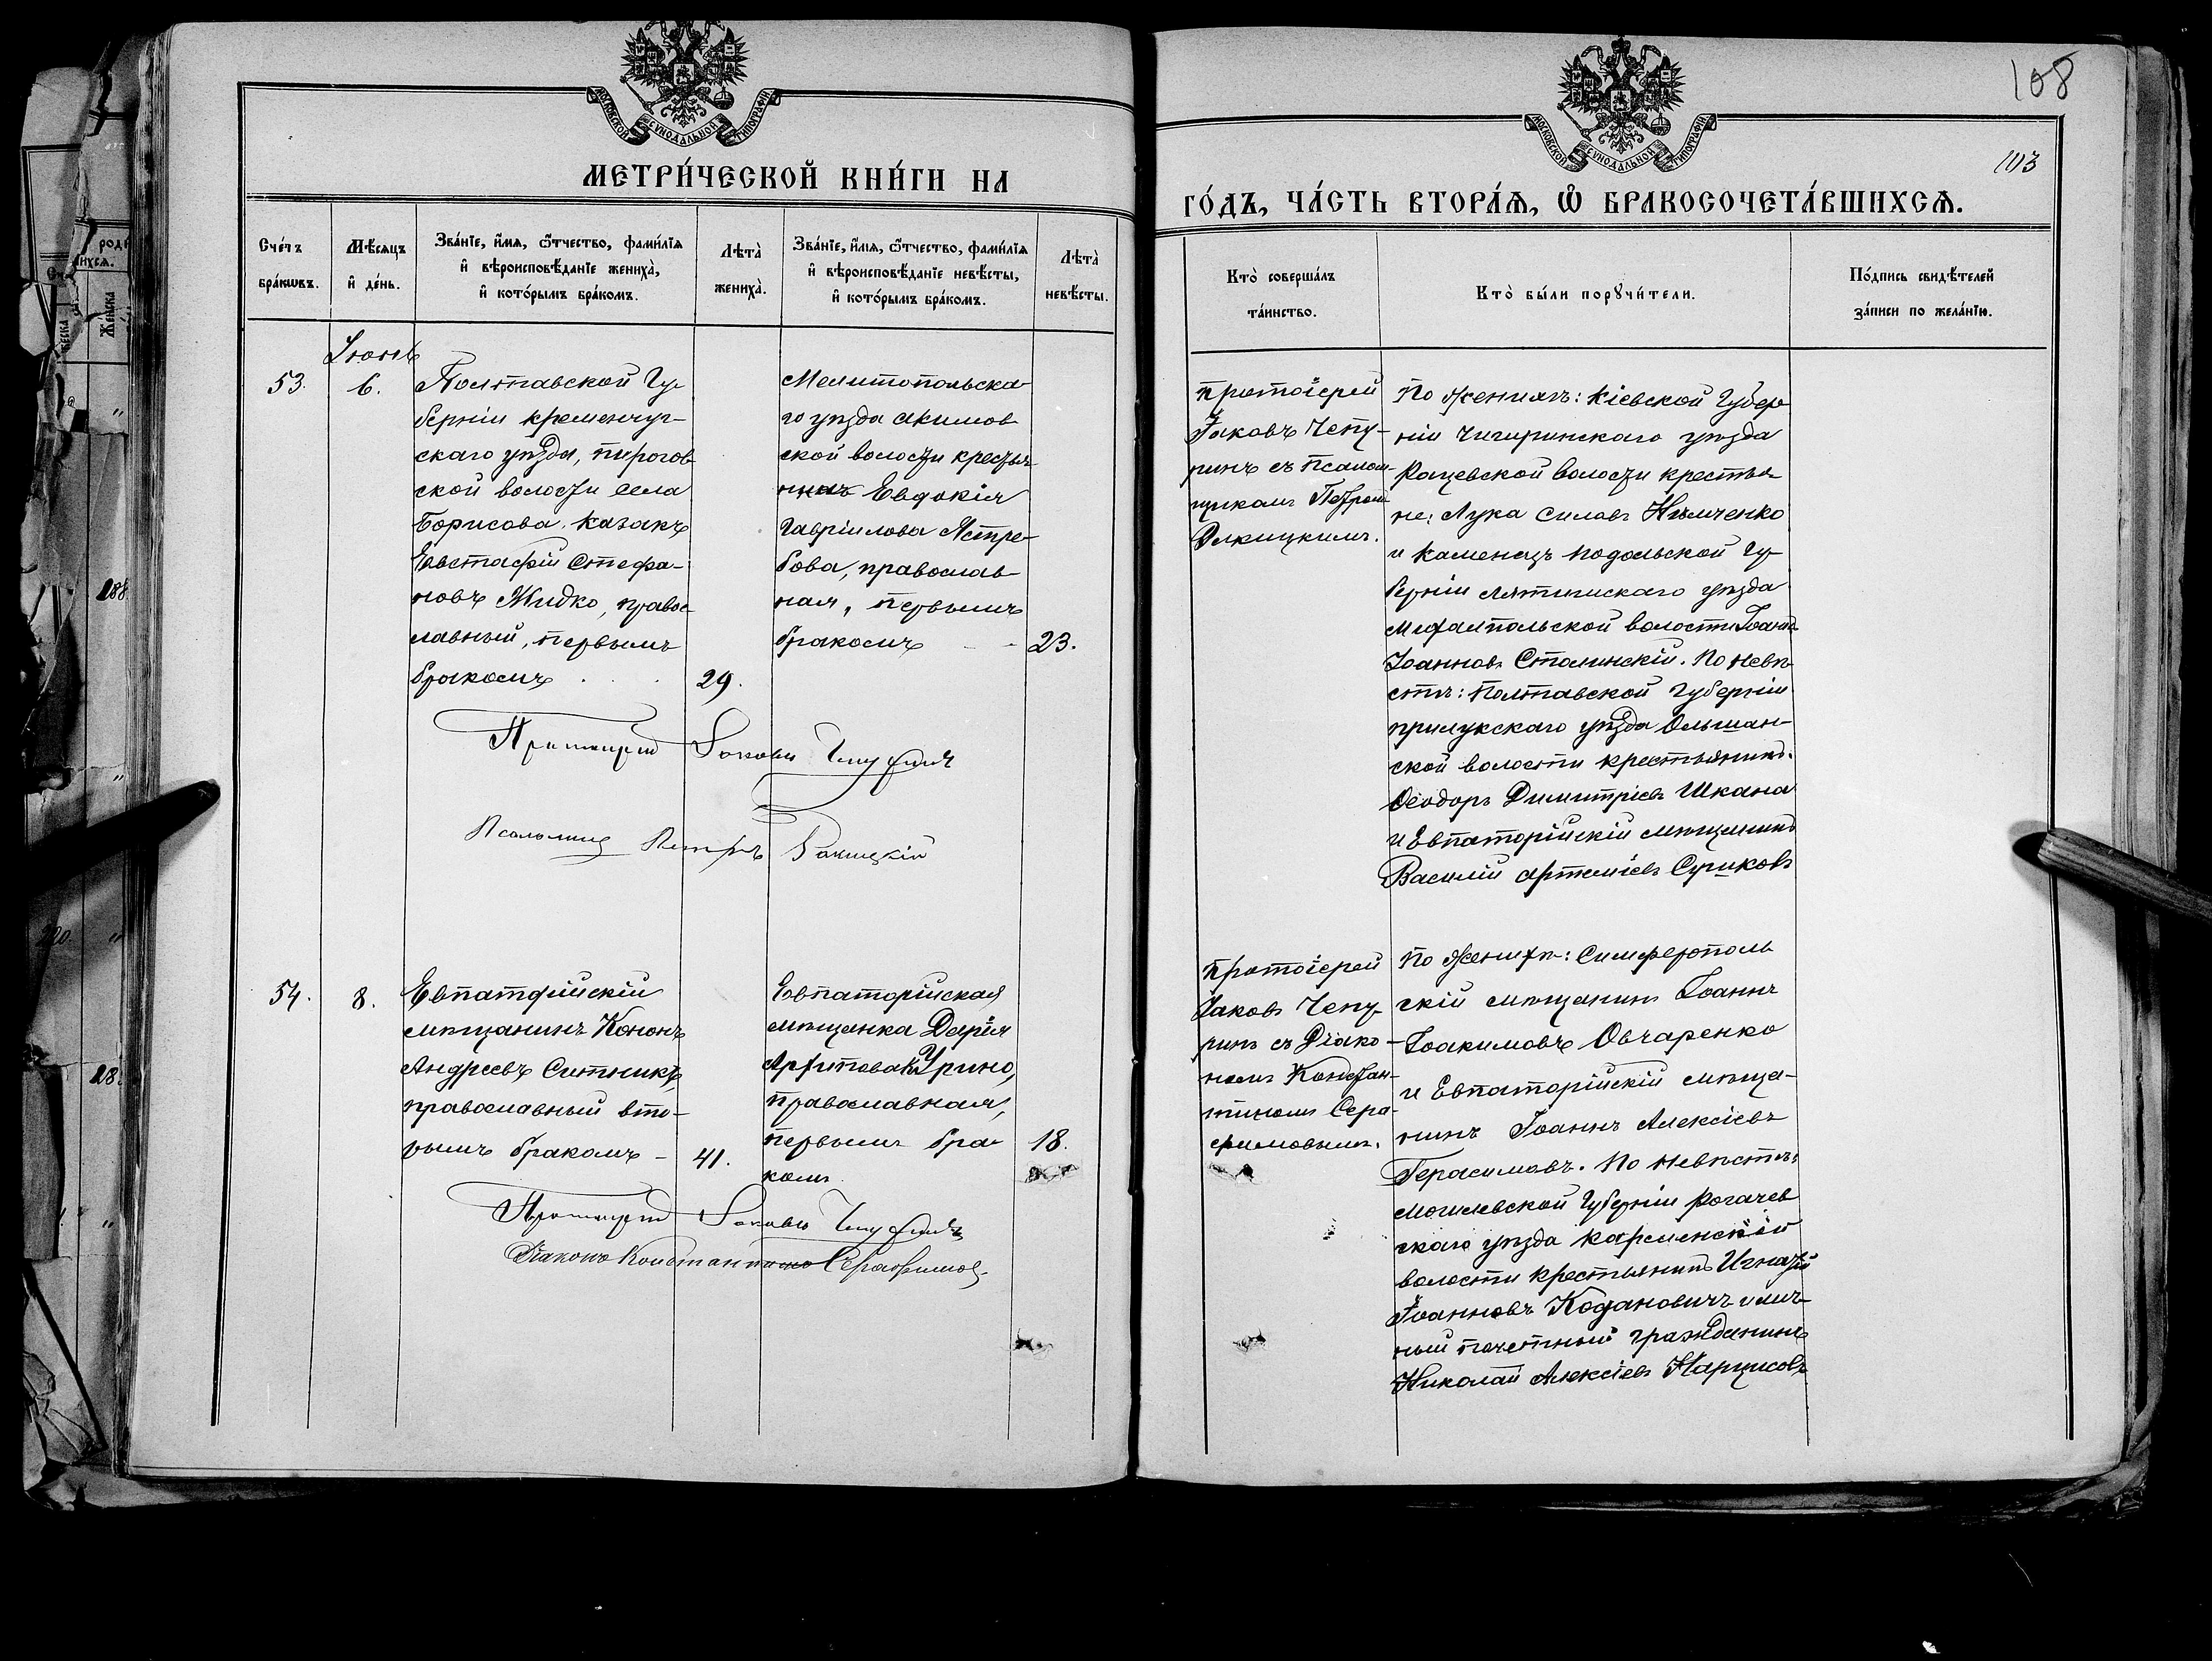 МОСКОВСКОЙ СУНОДАЛЬНОЙ ТИПОГРАФІИ
МЕТРИ́ЧЕСКОЙ КНИ́ГИ НА
Сче́тъ бра́кѡвъ.
Мѣ́сяцъ и҆ де́нь.
Зва́нїе, и҆́мѧ, ѻ҆́тчество, фами́лїѧ
и҆ вѣроисповѣ́данїе жениха̀,
и҆ кото́рымъ бра́комъ.
Лѣта̀ жениха̀.
Зва́нїе, и҆́мѧ, ѻ҆́тчество, фами́лїѧ
и҆ вѣроисповѣ́данїе невѣ́сты,
и҆ кото́рымъ бра́комъ.
Лѣта̀ невѣ́сты.
Іюнь
53.
6.
Полтавской Гу-
берніи кременчуг-
скаго уѣзда, пирогов
ской волости села
Борисова, казакъ
Евстафій Стефа-
новъ Жидко, правос
лавный, первымъ
бракомъ
29.
Мелитопольска
го уѣзда акимов
ской волости крестья
Евдокія
Гавріилова Ястре-
бова, православ
ная, первымъ
бракомъ
23.
Протоіерей Іаковъ Чепуринъ
Псаломщ Петръ Ракицкій
54.
8.
Евпаторійскій
мѣщанинъ Кононъ
Андреевъ Ситникъ
православный вто-
рымъ бракомъ -
41.
Евпаторійская
мѣщанка Дарія
Архипова
православная,
первымъ бра
комъ
18.
Протоіерей Іаковъ Чепуринъ
Діаконъ Константинъ Серафимов
108
103
МОСКОВСКОЙ СУНОДАЛЬНОЙ ТИПОГРАФІИ
ГО́ДЪ, ЧА́СТЬ ВТОРА́Ѧ, Ѡ҆ БРАКОСОЧЕТА́ВШИХСѦ.
Кто̀ соверша́лъ
та́инство.
Кто̀ бы́ли порꙋчи́тели.
По́дпись свидѣ́телей
за́писи по жела́нїю.
протоіерей
Іаковъ Чепу-
ринъ съ псалом-
щикомъ Петром
Ракицкимъ.
По женихѣ: Кіевской Губер
ніи Чигиринскаго уѣзда
Рацевской волости крестья
не: Лука Силовъ Нѣмченко
и Каменецъ подольской Гу-
берніи Лятинскаго уѣзда
волости Іоаннъ
Іоанновъ Сталинскій. По невѣ
стѣ: Полтавской Губерніи
прилукскаго уѣзда Ольшан-
ской волости крестьянинъ
Ѳеодоръ Димитріевъ Шкана
и Евпаторійскій мѣщанинъ
Василій Артеміевъ Суриковъ
протоіерей
Іаковъ Чепу-
ринъ съ Діако-
номъ Констан-
тиномъ Сера-
фимовымъ.
По женихѣ: Симферополь
скій мѣщанинъ Іоаннъ
Іоакимовъ Овчаренко
и Евпаторійскій мѣща-
нинъ Іоаннъ Алексіевъ
Герасимовъ. По невѣстѣ:
Могилевской Губерніи Рогачев
скаго уѣзда
волости крестьянинъ Игнатій
Іоанновъ Кодановичъ и лич-
ный почетный гражданинъ
Николай Алексіевъ Нарцисовъ